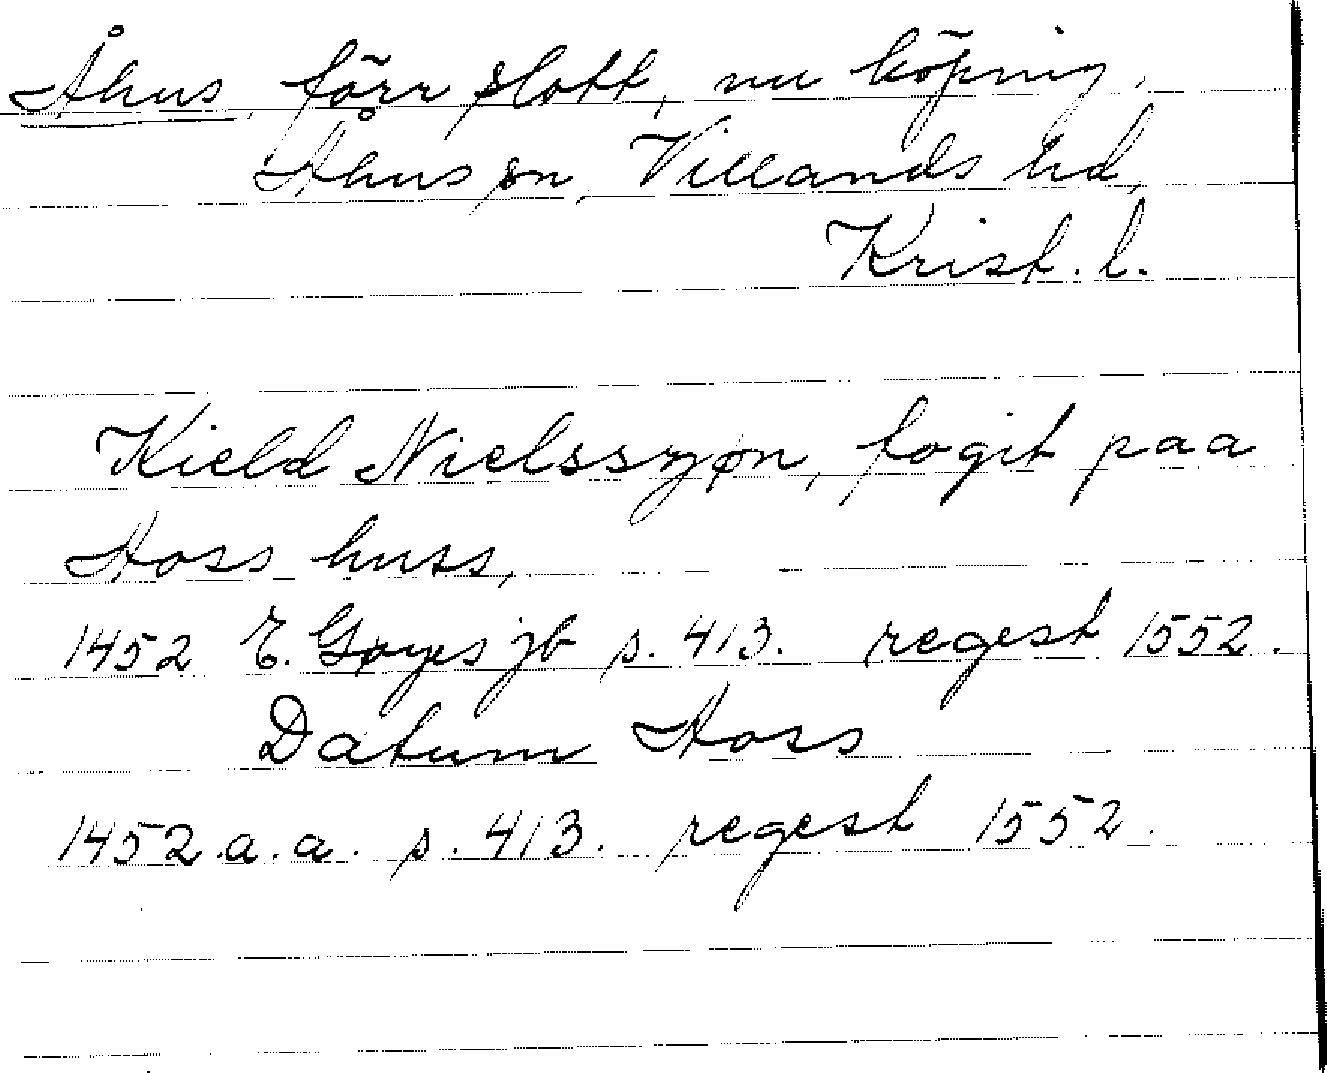 Åhus, förr slott, nu köping,
Åhus sn, Villands hd,
Krist. l.
Kield Nielsszøn, fogit paa
Hoss huss,
1452 E. Gøyes jb s. 413. regest 1552.
Datum Hoss
1452 a.a. s. 413. regest 1552.